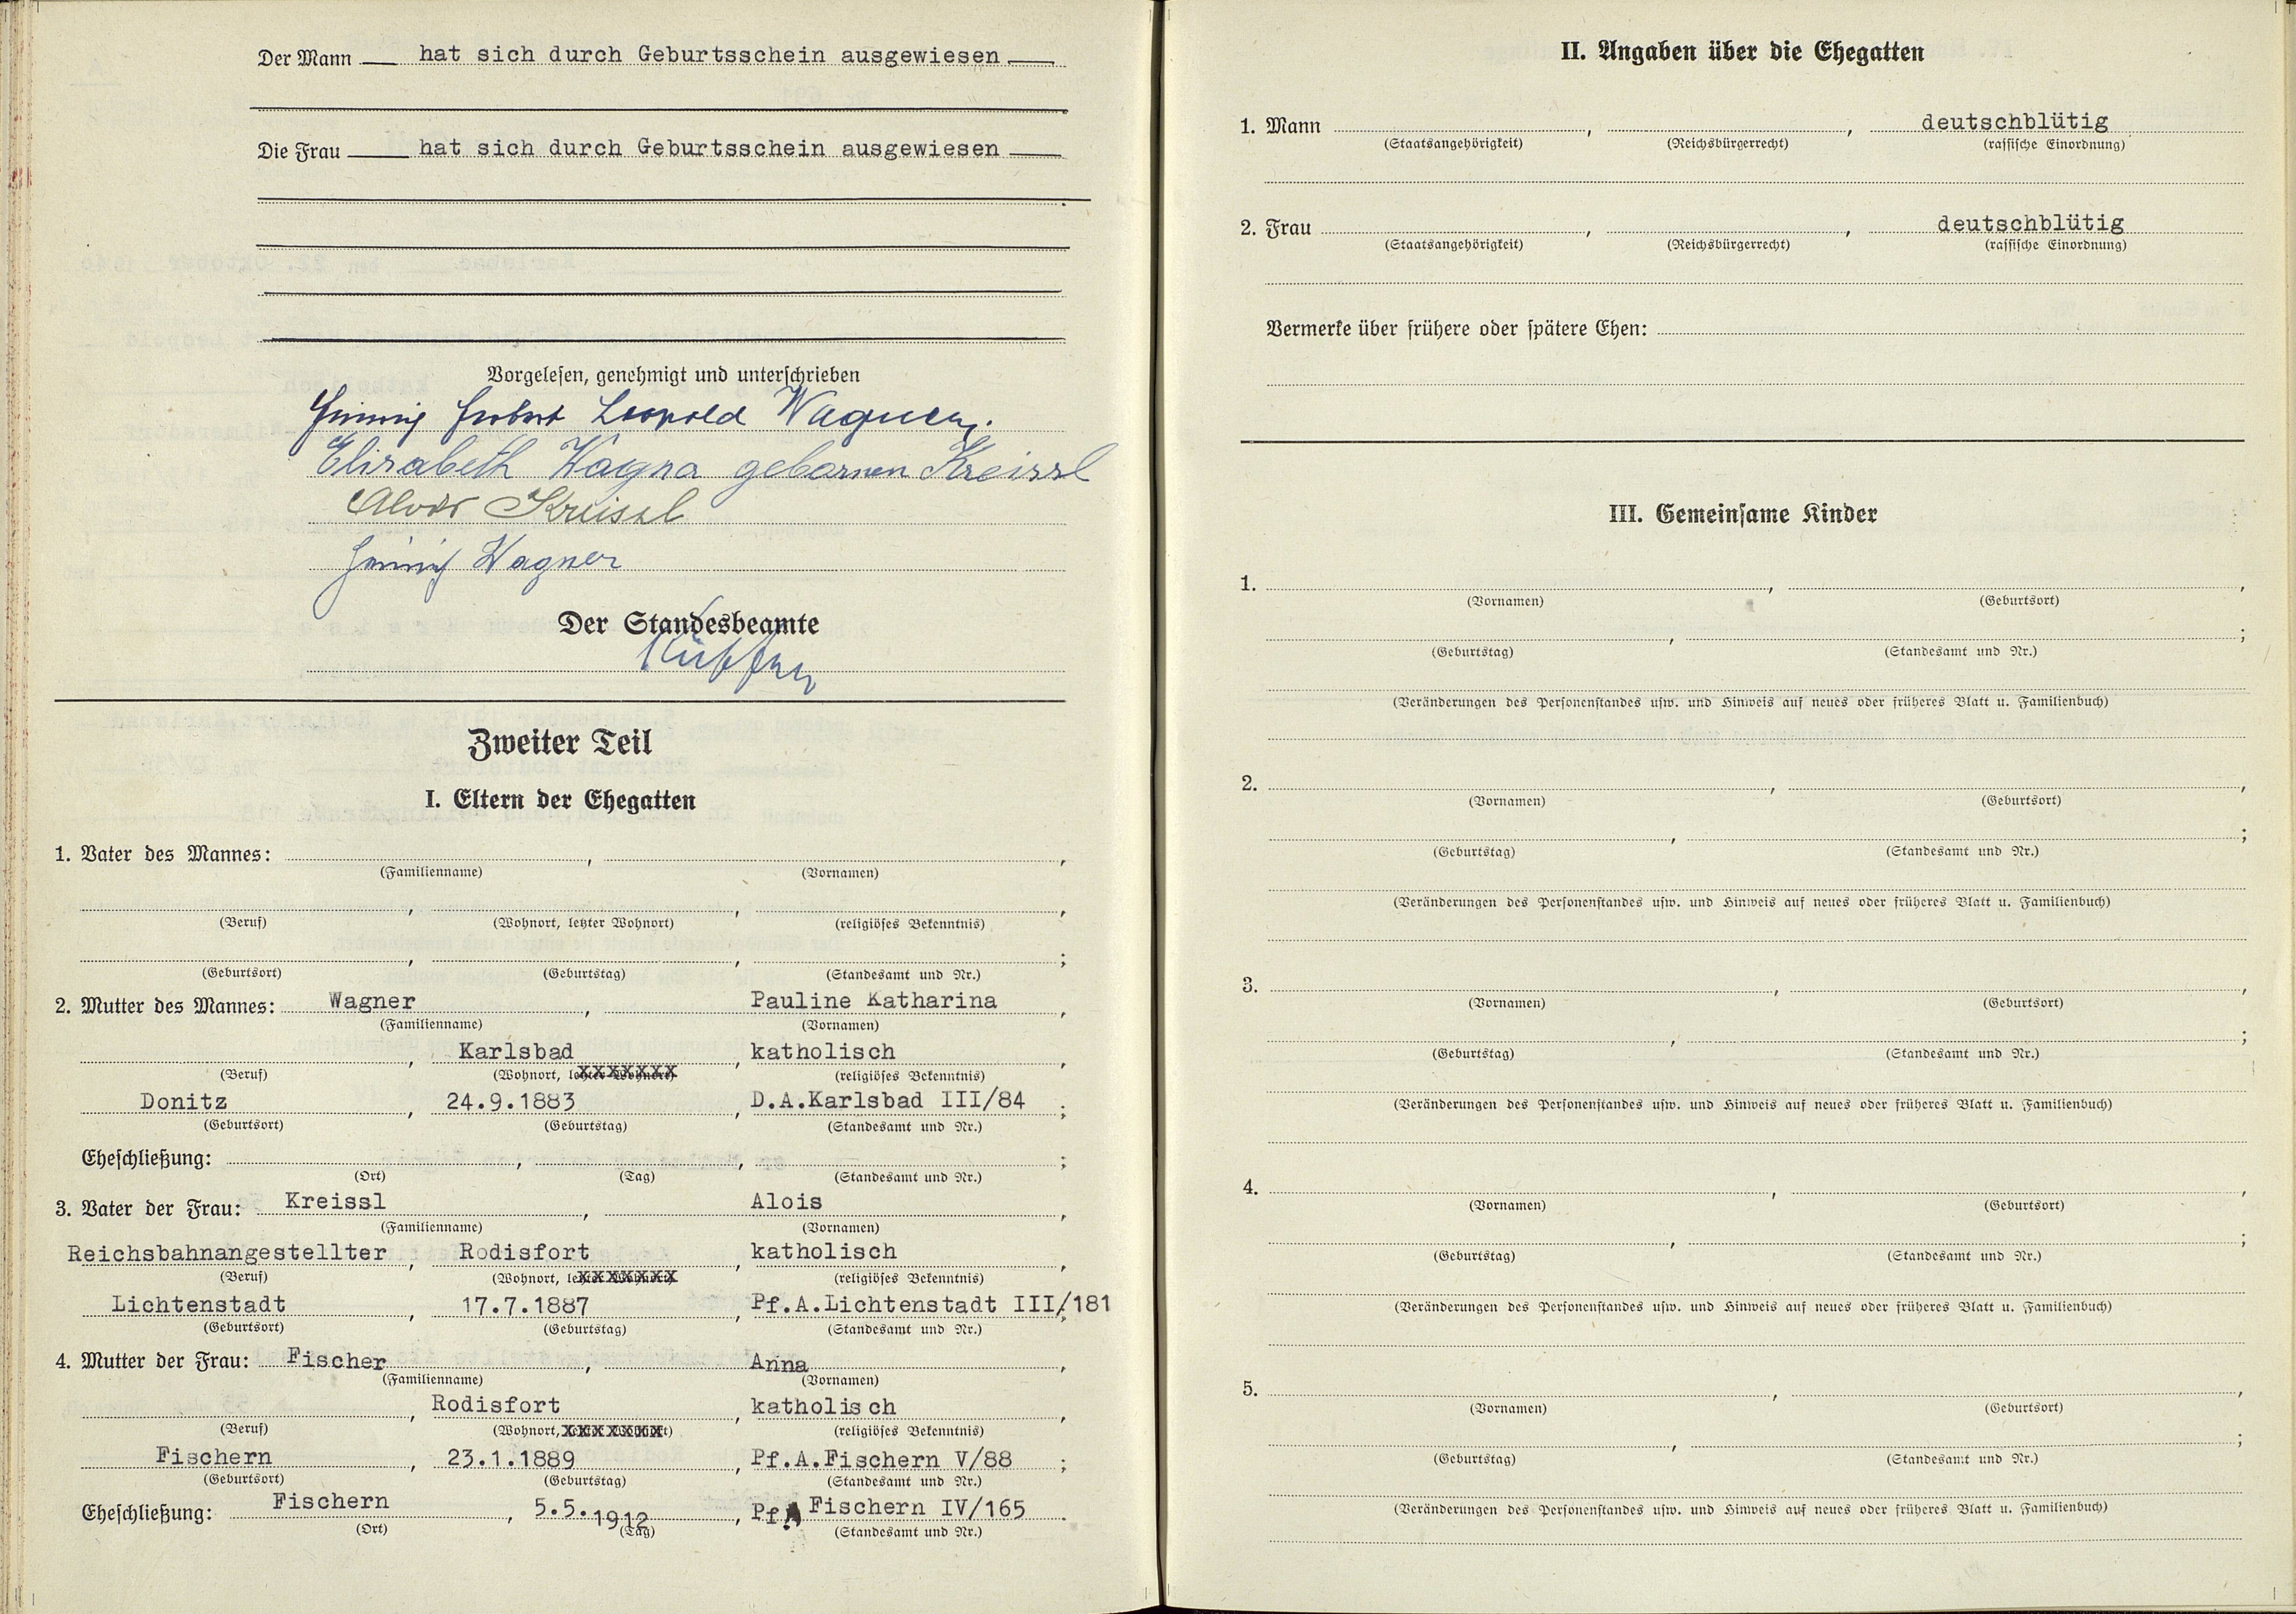 Der Mann hat sich durch Geburtsschein ausgewiesen
Die Frau hat sich durch Geburtsschein ausgewiesen
Vorgelesen, genehmigt und unterschrieben
Leopold Wagner.
Elisabeth Wagner geborenen Kreissl
Alois Kreissl
Wagner
Der Standesbeamte
Zweiter Teil
I. Eltern der Ehegatten
1. Vater des Mannes: , ,
(Familienname) (Vornamen)
, , ,
(Beruf) (Wohnort, letzter Wohnort) (religiöses Bekenntnis)
, , ;
(Geburtsort) (Geburtstag) (Standesamt und Nr.)
2. Mutter des Mannes: Wagner , Pauline Katharina ,
(Familienname) (Vornamen)
, Karlsbad katholisch ,
(Beruf) (Wohnort, letzter Wohnort) (religiöses Bekenntnis)
Donitz , 24.9.1883 , D.A.Karlsbad III/84 ;
(Geburtsort) (Geburtstag) (Standesamt und Nr.)
Eheschließung: , , ;
(Ort) (Tag) (Standesamt und Nr.)
3. Vater der Frau: Kreissl , Alois ,
(Familienname) (Vornamen)
Reichsbahnangestellter , Rodisfort , katholisch ,
(Beruf) (Wohnort, letzter Wohnort) (religiöses Bekenntnis)
Lichtenstadt , 17.7.1887 , Pf.A.Lichtenstadt III/181 ;
(Geburtsort) (Geburtstag) (Standesamt und Nr.)
4. Mutter der Frau: Fischer , Anna ,
(Familienname) (Vornamen)
, Rodisfort , katholisch ,
(Beruf) (Wohnort, letzter Wohnort) (religiöses Bekenntnis)
Fischern , 23.1.1889 , Pf.A.Fischern V/88 ;
(Geburtsort) (Geburtstag) (Standesamt und Nr.)
Eheschließung: Fischern , 5.5.1912 , Pf.A Fischern IV/165 .
(Ort) (Tag) (Standesamt und Nr.)
II. Angaben über die Ehegatten
1. Mann , , deutschblütig
(Staatsangehörigkeit) (Reichsbürgerrecht) (rassische Einordnung)
2. Frau , , deutschblütig
(Staatsangehörigkeit) (Reichsbürgerrecht) (rassische Einordnung)
Vermerke über frühere oder spätere Ehen:
III. Gemeinsame Kinder
1. , ,
(Vornamen) (Geburtsort)
, ;
(Geburtstag) (Standesamt und Nr.)
(Veränderungen des Personenstandes usw. und Hinweis auf neues oder früheres Blatt u. Familienbuch)
2. , ,
(Vornamen) (Geburtsort)
, ;
(Geburtstag) (Standesamt und Nr.)
(Veränderungen des Personenstandes usw. und Hinweis auf neues oder früheres Blatt u. Familienbuch)
3. , ,
(Vornamen) (Geburtsort)
, ;
(Geburtstag) (Standesamt und Nr.)
(Veränderungen des Personenstandes usw. und Hinweis auf neues oder früheres Blatt u. Familienbuch)
4. , ,
(Vornamen) (Geburtsort)
, ;
(Geburtstag) (Standesamt und Nr.)
(Veränderungen des Personenstandes usw. und Hinweis auf neues oder früheres Blatt u. Familienbuch)
5. , ,
(Vornamen) (Geburtsort)
, ;
(Geburtstag) (Standesamt und Nr.)
(Veränderungen des Personenstandes usw. und Hinweis auf neues oder früheres Blatt u. Familienbuch)